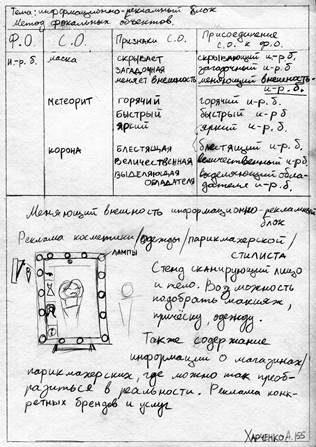 Тема: информационно-рекламный блок
Метод фокальных объектов.
Ф.О. С.О. Признаки С.О. Присоединение С.О. к Ф.О.
и-р. б. маска скрывает скрывающий и-р. б.
загадочная загадочный и-р. б.
меняет внешность меняющий внешность и-р. б.
метеорит горячий горячий и-р. б.
быстрый быстрый и-р. б.
яркий яркий и-р. б.
корона блестящая блестящий и-р. б.
величественная величественный и-р. б.
выделяющая обладателя выделяющий обладателя и-р. б.
Меняющий внешность информационно-рекламный блок
Реклама косметики/одежды/парикмахерской/стилиста
лампы
Стенд сканирующий лицо
и тело. Возможности
подобрать макияж,
причёску, одежду.
Также содержание
информации о магазинах/
парикмахерских, где можно так преоб-
разиться в реальности. Реклама кон-
кретных брендов и услуг
Харченко А. 155